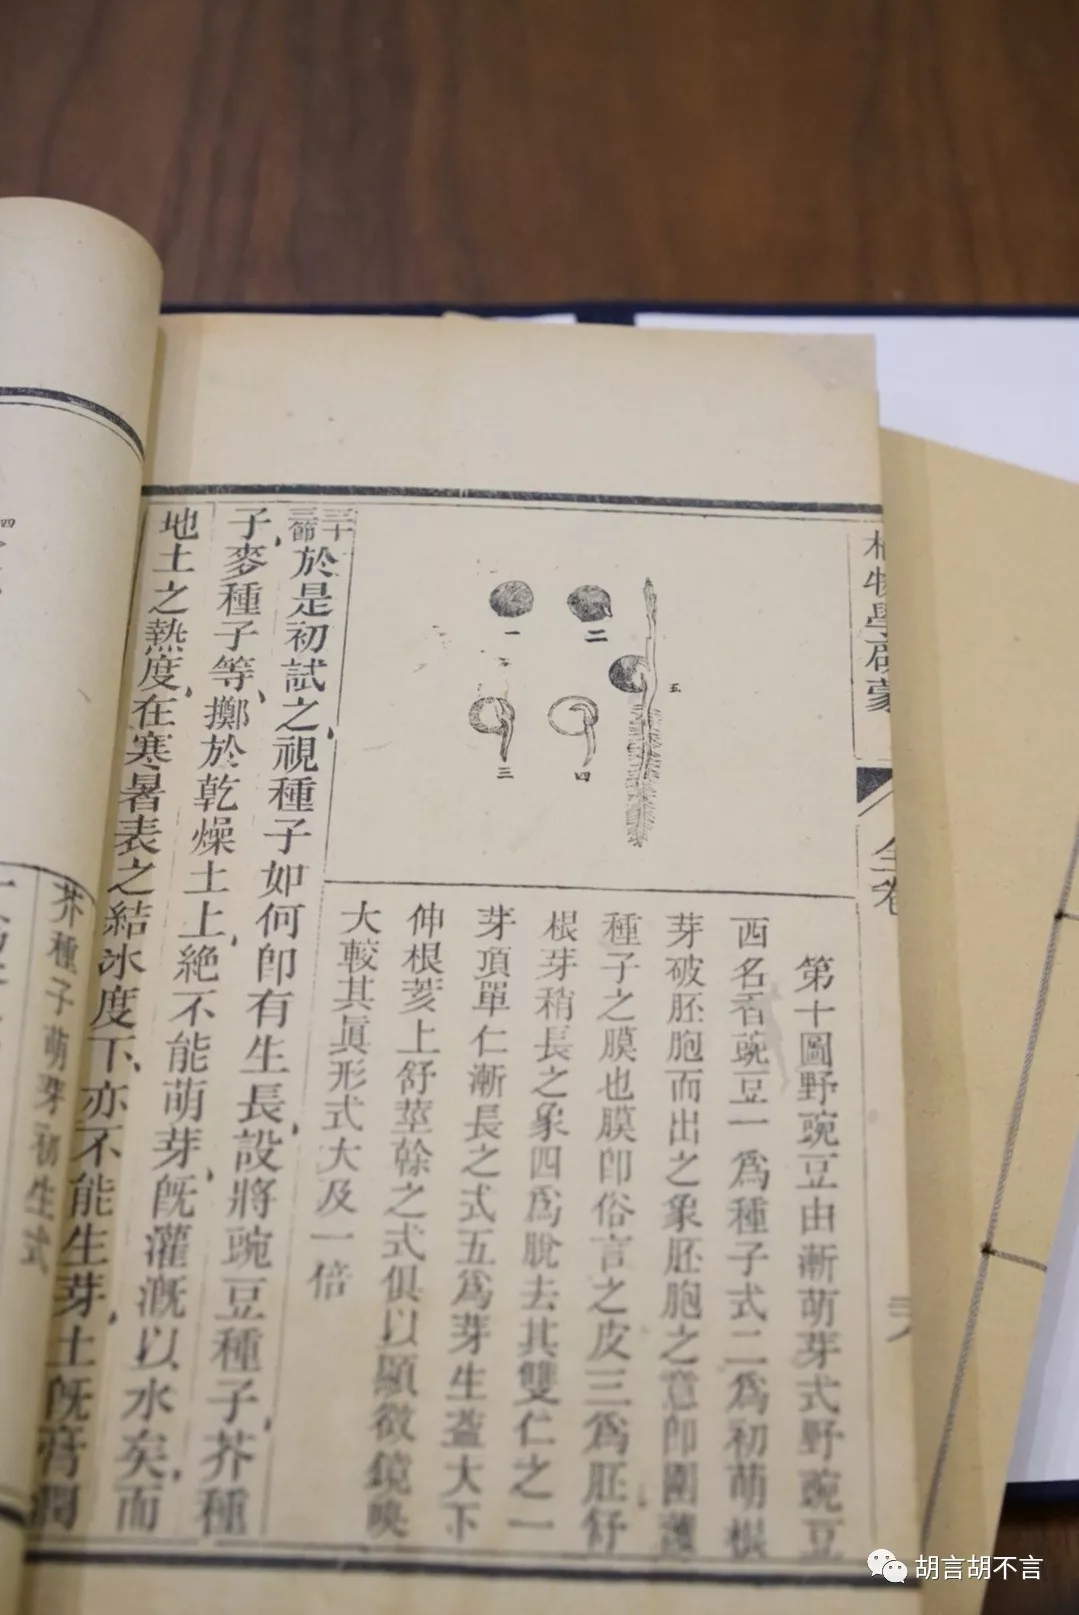 植物學啟蒙
全卷
一
二
三
四
五
第十圖野豌豆由漸萌芽式野豌豆
西名香豌豆一爲種子式二爲初萌根
芽破胚胞而出之象胚胞之意卽圍護
種子之膜也膜卽俗言之皮三爲胚舒
根芽稍長之象四爲脫去其雙仁之一
芽頂單仁漸長之式五爲芽生葢大下
伸根荄上舒莖幹之式俱以顯微鏡映
大較其眞形式大及一倍
三十三節
於是初試之視種子如何卽有生長設將豌豆種子芥種
子麥種子等擲於乾燥土上絕不能萌芽旣灌漑以水矣而
地土之熱度在寒暑表之結冰度下亦不能生芽土旣膏潤
芥種子萌芽初生式
四
胡言胡不言